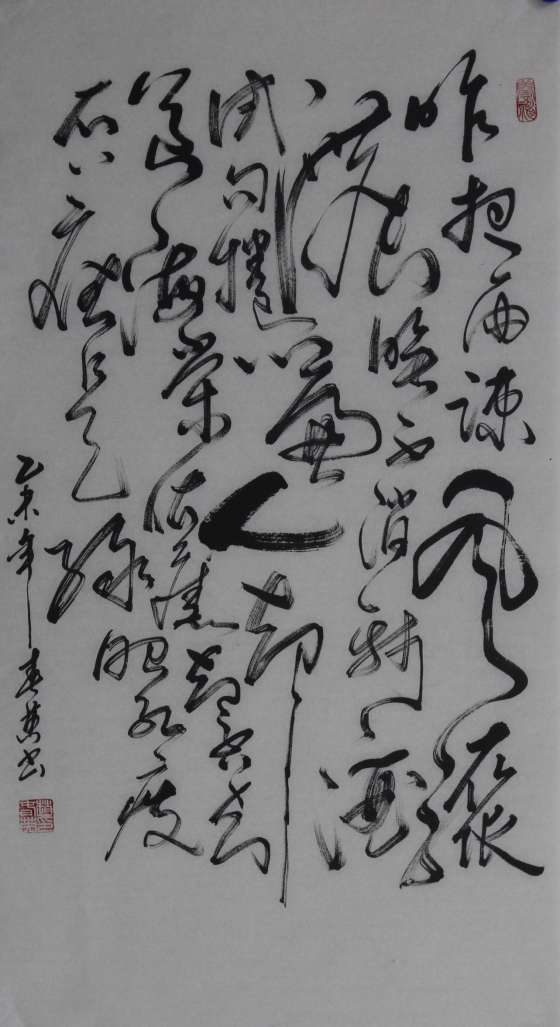 昨夜雨疎风骤
浓睡不消残酒
试问捲帘人却
道海棠依旧知否知
否应是绿肥红瘦
乙未年春英书